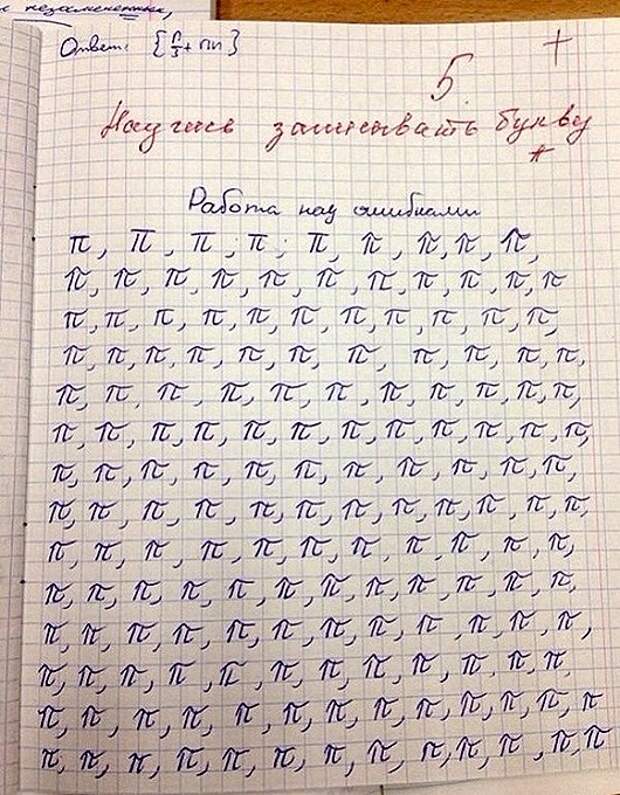 Ответ: {π/3 + πn}
5. +
Научись записывать букву
π
Работа над ошибками
π, π, π, π, π, π, π, π, π,
π, π, π, π, π, π, π, π, π, π, π
π, π, π, π, π, π, π, π, π, π, π,
π, π, π, π, π, π, π, π, π, π, π,
π, π, π, π, π, π, π, π, π, π, π,
π, π, π, π, π, π, π, π, π, π, π, π,
π, π, π, π, π, π, π, π, π, π, π,
π, π, π, π, π, π, π, π, π, π, π, π,
π, π, π, π, π, π, π, π, π, π, π,
π, π, π, π, π, π, π, π, π, π, π, π,
π, π, π, π, π, π, π, π, π, π, π, π,
π, π, π, π, π, π, π, π, π, π, π, π,
π, π, π, π, π, π, π, π, π, π, π, π, π
π, π, π, π, π, π, π, π, π, π, π, π, π